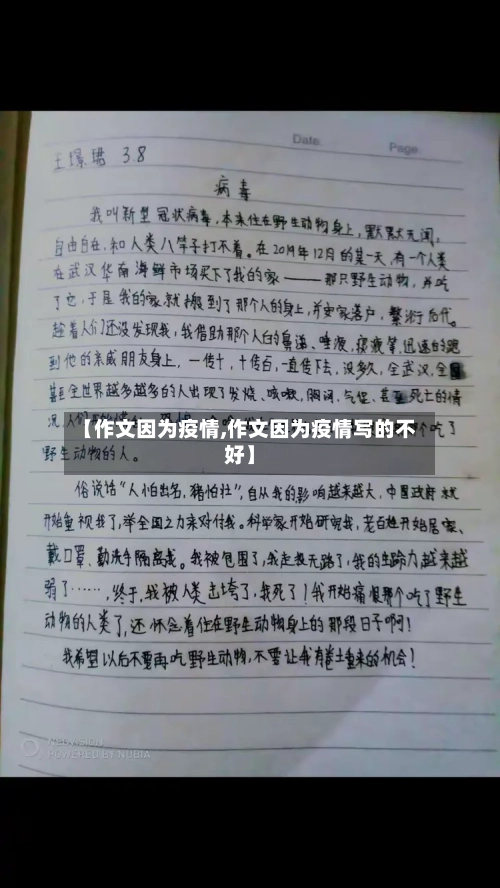 Date
Page
王璟珺 3.8
病毒
我叫新型冠状病毒,本来住在野生动物身上,默默无闻,
自由自在,和人类八竿子打不着。在2019年12月的某一天,有一个人类
在武汉华南海鲜市场买下了我的家——那只野生动物,并吃
了它,于是我的家就搬到了那个人的身上,并安家落户,繁衍后代。
趁着人们还没发现我,我借助那个人的鼻涕、唾液、
迅速的跑
到他的亲戚朋友身上,一传十,十传百,一直传下去,没多久,全武汉,全国
甚至全世界越多越多的人出现了发烧、咳嗽,胸闷,气促,甚至死亡的情
况,人们
吃了
【作文因为疫情,作文因为疫情写的不
好】
野生动物的人。
俗说话“人怕出名,猪怕壮”,自从我的影响越来越大,中国政府就
开始重视我了,举全国之力来对付我。科学家开始研究我,老百姓开始居家、
戴口罩、勤洗手隔离我。我被包围了,我走投无路了,我的生命力越来越
弱了……,终于,我被人类击垮了,我死了!我开始痛恨那个吃了野生
动物的人类了,还怀念着住在野生动物身上的那段日子啊!
我希望以后不要再吃野生动物,不要让我有卷土重来的机会!
POWERED BY NUBIA